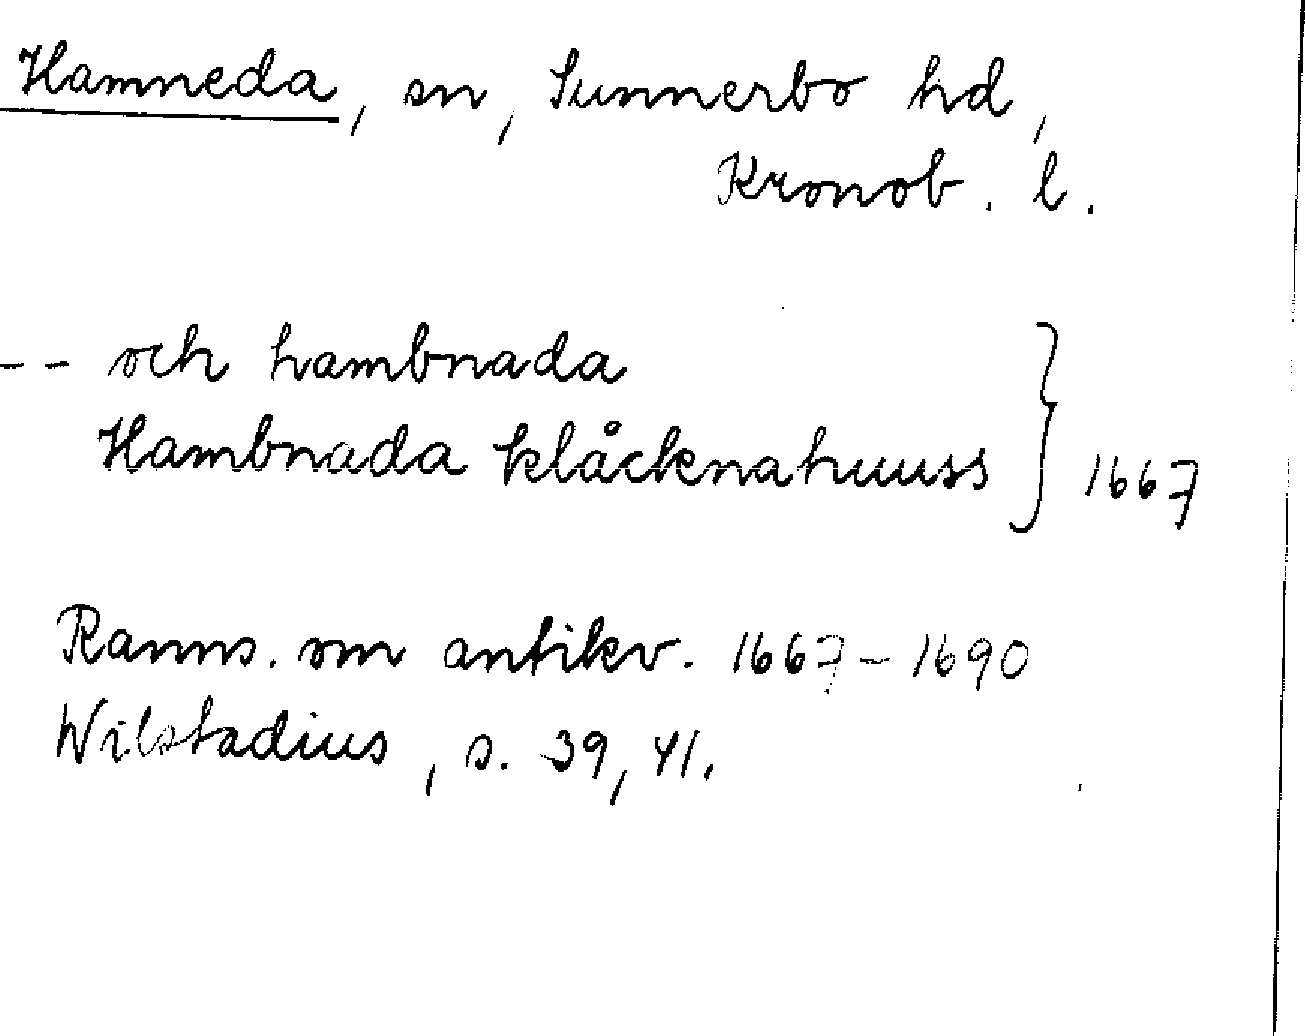 Hamneda, sn, Sunnerbo hd,
Kronob. l.
-- och hambnada
Hambnada klåcknahuuss } 1667
Ranns. om antikv. 1667-1690
Wilstadius, s. 39, 41.